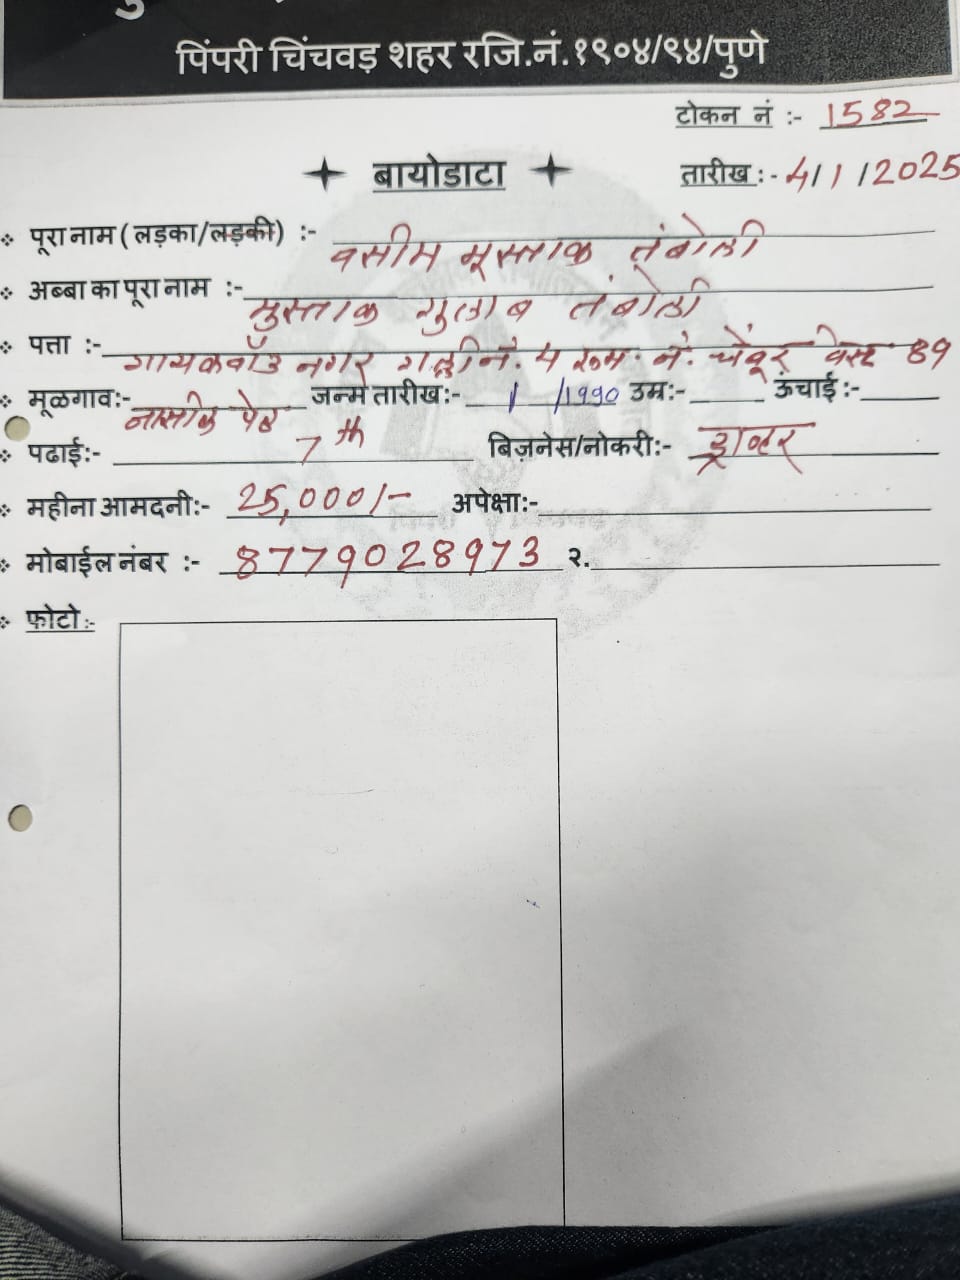 पिंपरी चिंचवड़ शहर रजि.नं.१९०४/९४/पुणे
टोकन नं :- 1582
बायोडाटा
तारीख :- 4/1/2025
पूरा नाम ( लड़का/लड़की) :- वसीम मूस्ताक तंबोली
अब्बा का पूरा नाम :- मुस्ताक गुलाब तंबोली
पत्ता :- गायकवाॅड नगर गल्लीनं. 4 रूम. नं. चेंबूर वेस्ट 89
मूळगाव:- नासीक पेठ जन्म तारीख:- 1 /1990 उम्र:- ऊंचाई :-
पढाई:- 7th बिज़नेस/नोकरी:- ड्राव्हर
महीना आमदनी:- 25,000/- अपेक्षा:-
मोबाईल नंबर :- 8779028973 २.
फोटो :-